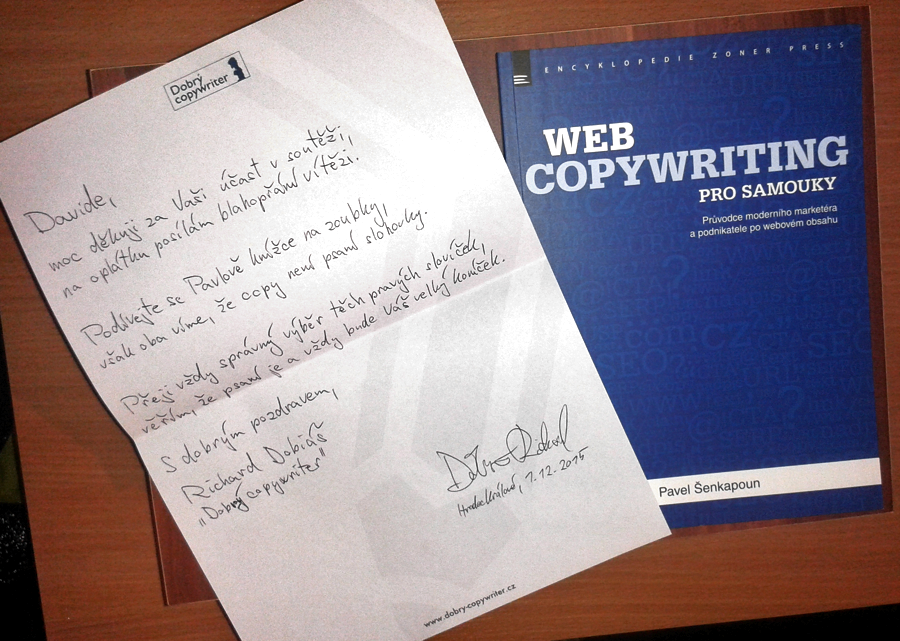 Dobrý
copywriter
Davide,
moc děkuji za Vaši účast v soutěži,
na oplátku posílám blahopřání vítězi.
Podívejte se Pavlově knížce na zoubky,
však oba víme, že copy není psaní slohovky.
Přeji vždy správný výběr těch pravých slovíček,
věřím, že psaní je a vždy bude Váš velký koníček.
S dobrým pozdravem,
Richard Dobiáš
"Dobrý copywriter"
Hradec Králové, 1.12.2015
www.dobry-copywriter.cz
ENCYKLOPEDIE ZONER PRESS
WEB
COPYWRITING
PRO SAMOUKY
Průvodce moderního marketéra
a podnikatele po webovém obsahu
Pavel Šenkapoun